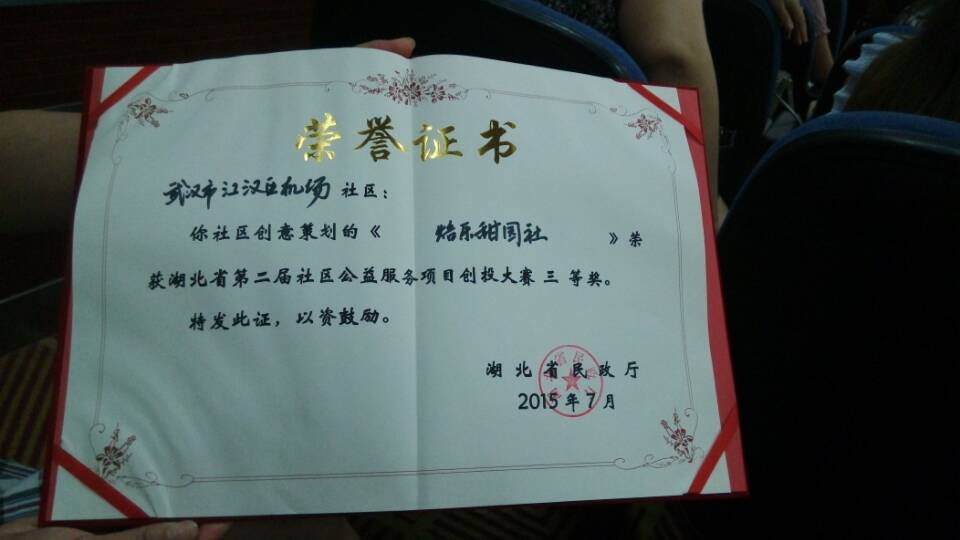 荣誉证书
武汉市江汉区机场 社区：
你社区创意策划的《 怡乐甜园社 》荣
获湖北省第二届社区公益服务项目创投大赛 三 等奖。
特发此证，以资鼓励。
湖北省民政厅
2015年7月